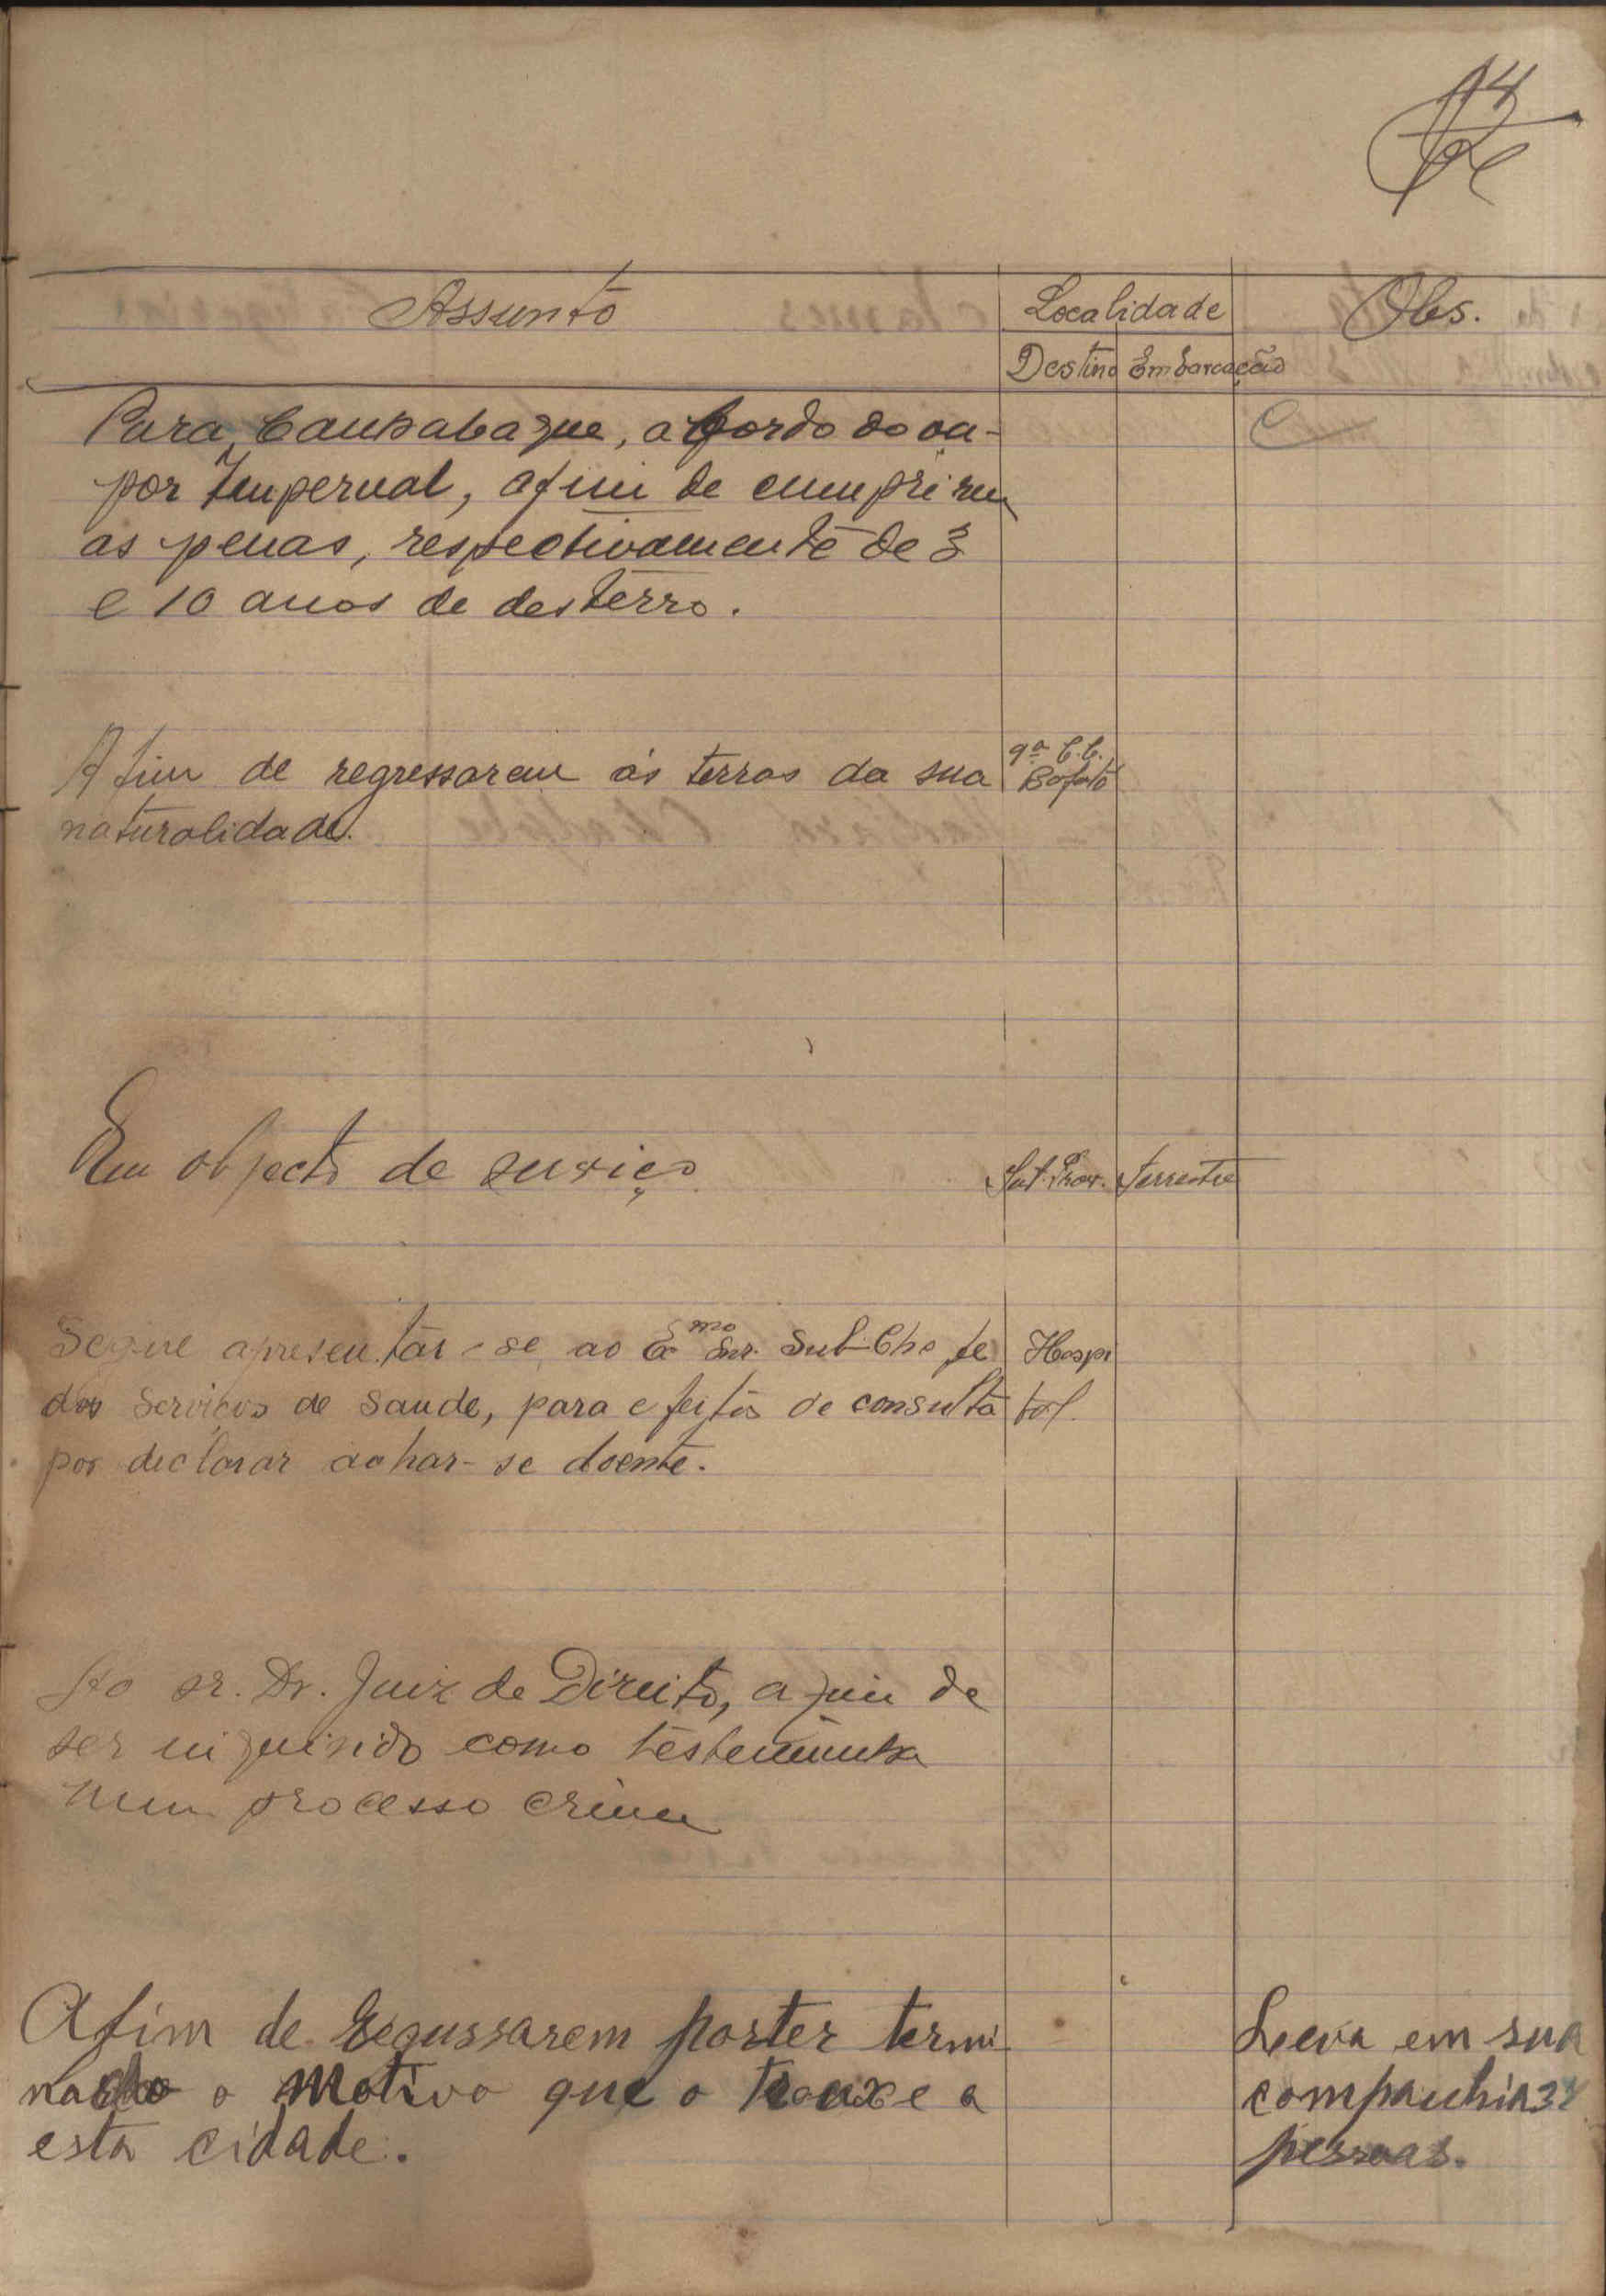 14
Assunto
Localidade
Obs.
Destino Embarcação
Para Canhabaque, a bordo do va-
por Impernal, afim de cumprirem
as penas, respectivamente de 3
e 10 anos de desterro.
Afim de regressarem ás terras da sua
naturalidade.
9ª C.C.
Bafatá
Em objecto de serviço
Terrestre
Segue apresentar-se ao Exmo Snr. Sub-Chefe
dos Serviços de Saude, para efeitos de consulta
por declarar achar-se doente.
Hospi
tal.
Ao sr. Dr. Juiz de Direito, afim de
ser inquirido como testemunha
num processo crime
Afim de regussarem por ter termi
nado o motivo que o trouxe a
esta cidade.
Leva em sua
companhia 3
pessoas.